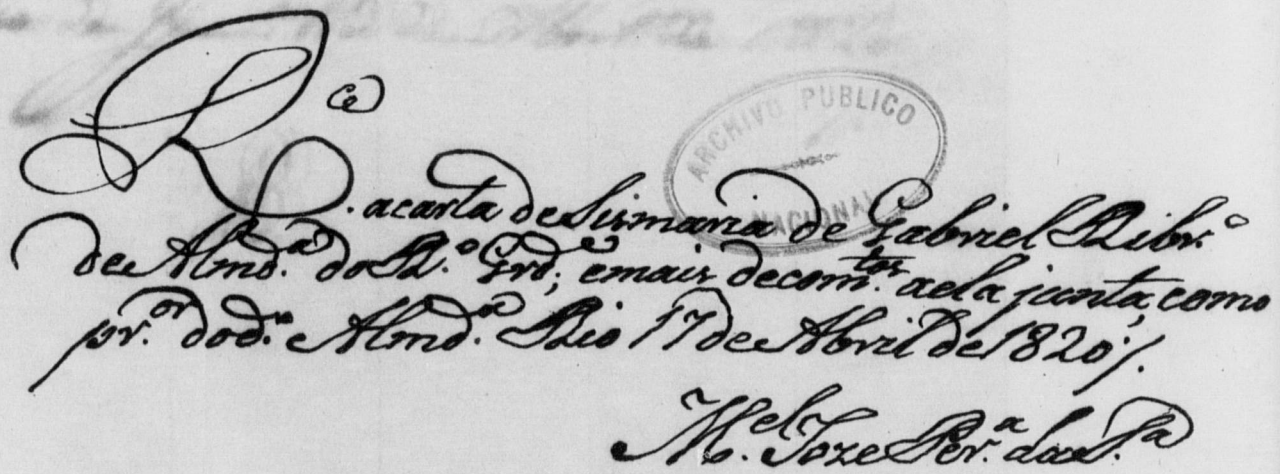 R.ce a carta de Sismaria de Gabriel Ribr.º
de Almd.ª do R.º Grd.e; e mais decom.tos a ela junta, como
pr.or do d.º Almd.ª Rio 17 de Abril de 1820 /.
M.el Joze Per.ª da S.ª
ARCHIVO PUBLICO
NACIONAL